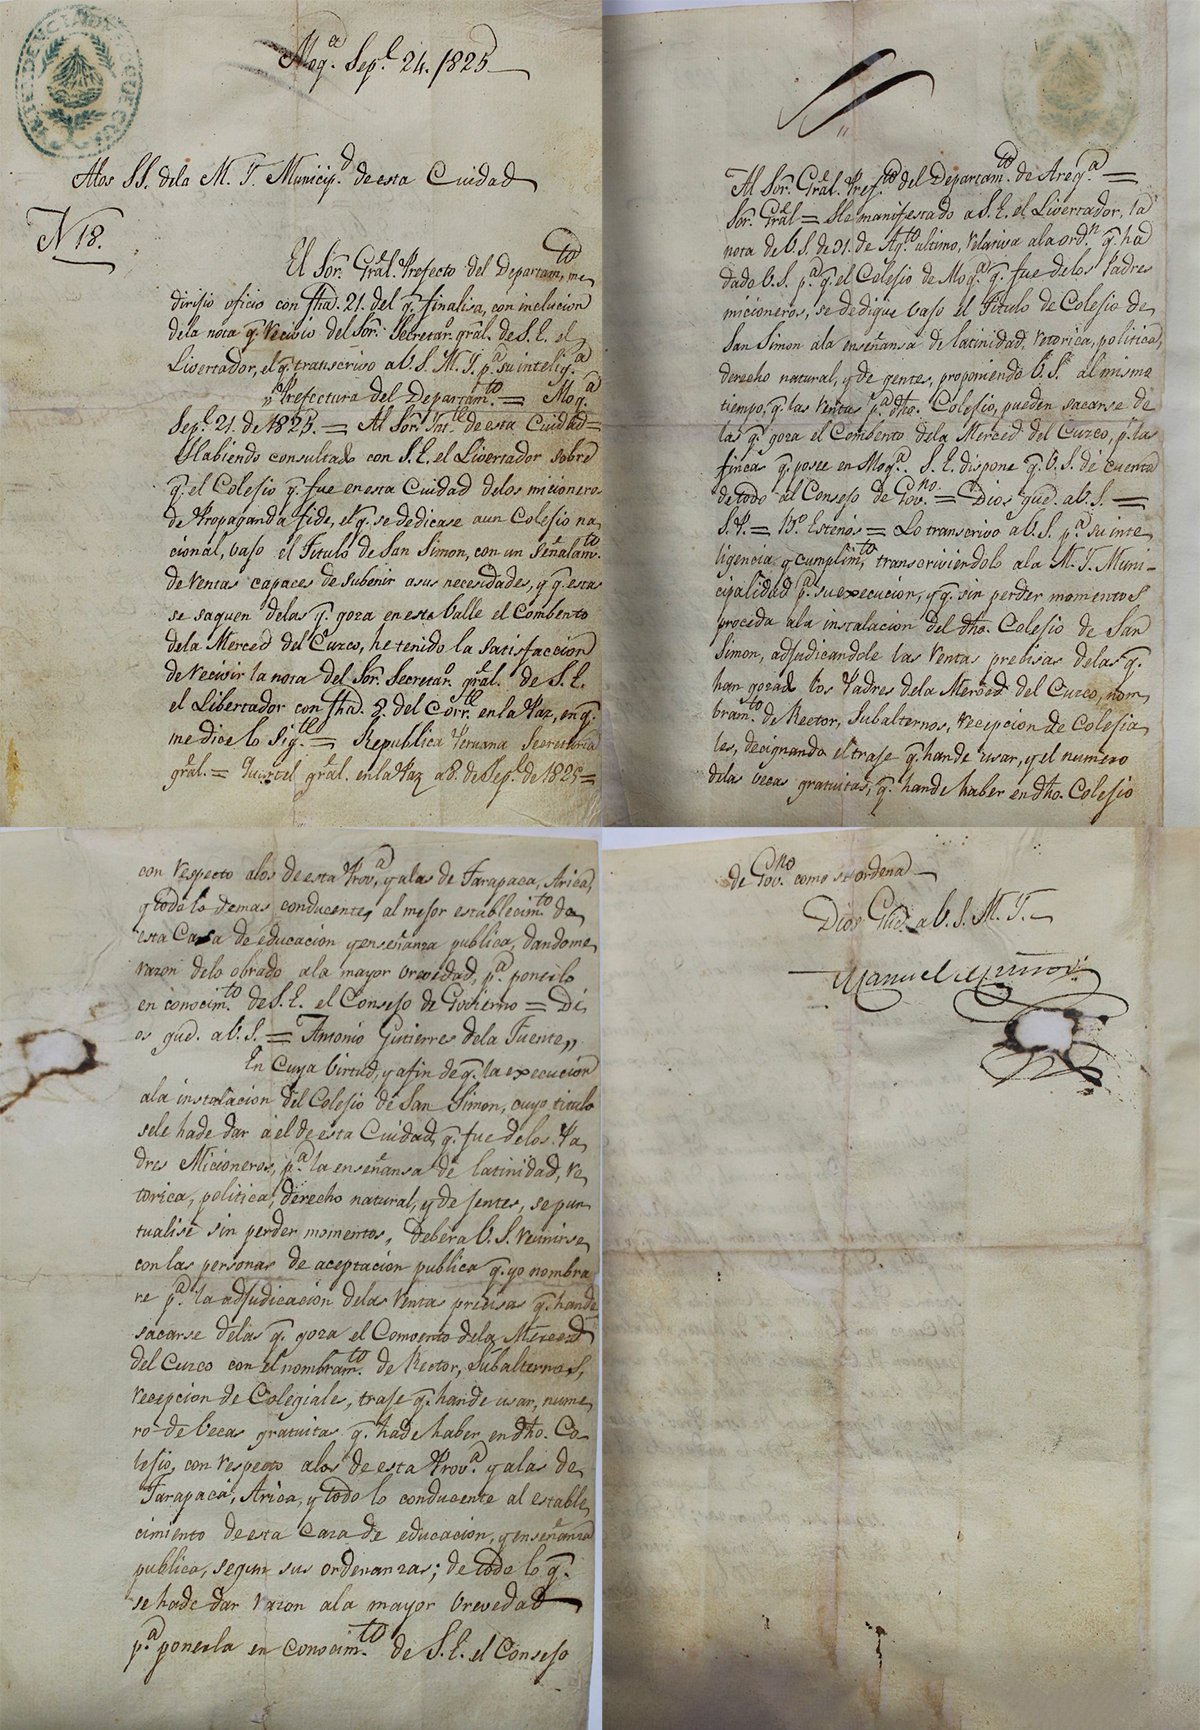 Moqª. Sepe. 24. 1825
Alos SS. dela M. Y. Municipd. de esta Ciudad
N 18.
El Sor. Gral. Prefecto del Departamto. me
dirijio oficio con fha. 21. del q. finalisa, con inclucion
dela nota q. recivio del Sor. Secretaro. gral. de S. E. el
Livertador, el q. transcrivo a V. S. M. Y. pª. su inteligª
"Prefectura del Departamto. = Moqª
Sepe. 21. de 1825. = Al Sor. Yntte. de esta Ciudad =
Habiendo consultado con S. E. el Livertador sobre
q. el Colejio q. fue en esta Ciudad delos micioneros
de Propaganda fide, el q. se dedicase aun Colejio na
cional, vajo el Titulo de San Simon, con un Señalamto.
de rentas capaces de subenir asus necesidades, y q. estas
se saquen delas q. goza en este Valle el Combento
dela Merced del Cuzco, he tenido la satisfaccion
de recivir la nota del Sor. Secretaro. gral. de S. E.
el Libertador con fha. 8. del Corrte. en la Paz, en q.
me dice lo sigte. = Republica Peruana Secretaria
gral. = Quartel gral. en la Paz a 8. de Sepe. de 1825 =
Al Sor. Gral. Prefto. del Departamto. de Areqª. =
Sor. Gral = He manifestado a S. E. el Livertador, la
nota de V. S. de 31. de Agto. ultimo, relativa ala ordn. q. ha
dado V. S. pª. q. el Colejio de Moqª. q. fue delos Padres
micioneros, se dedique vajo el Titulo de Colejio de
San Simon ala enseñansa de latinidad, retorica, politica,
derecho natural, y de gentes, proponiendo V. S. al mismo
tiempo, q. las rentas pª. dho. Colejio, pueden sacarse de
las q. goza el Combento dela Merced del Cuzco, p. las
fincas q. posee en Moqª. S. E. dispone q. V. S. dé cuenta
de todo al Consejo de Govno. = Dios gud. a V. S. =
S. P. = Fo. Estenós = Lo transcrivo a V. S. pª. su inte
ligencia y cumplimto. transcriviendolo ala M. Y. Muni-
cipalidad pª. su execucion, y q. sin perder momentos
proceda ala instalacion del dho. Colejio de San
Simon, adjudicandole las rentas precisas delas q.
han gozad los Padres dela Merced del Cuzco, nom
bramto. de Rector, Subalternos, recepcion de Colejia
les, decignando el traje q. hande usar, y el numero
delas vecas gratuitas, q. hande haber en dho. Colejio
con respecto alos de esta Provª, y alas de Tarapaca, Arica,
y todo lo demas conducente, al mejor establecimto. de
esta Casa de educacion y enseñanza publica, dandome
razon delo obrado ala mayor vrevedad, pª. poncilo
en conocimto. de S. E. el Consejo de Govierno = Di
os gud. a V. S. = Antonio Gutierres dela Fuente"
En cuya virtud, y afin de q. la execucion
ala instalacion del Colejio de San Simon, cuyo titulo
sele hade dar á el de esta Ciudad, q. fue delos Pa
dres Micioneros, pª. la enseñansa de latinidad, re
torica, politica, derecho natural, y de jentes, se pun
tualise sin perder momentos, deberá V. S. reunirse
con las personas de aceptacion publica q. yo nombra
re pª. la adjudicacion delas rentas precisas q. hande
sacarse delas q. goza el Comvento dela Merced
del Cuzco con el nombramto. de Rector, Subalternos,
recepcion de Colegiale, traje q. hande usar, nume
ro de becas gratuitas q. hade haber en dho. Co-
lejio, con respecto alos de esta Provª. y alas de
Tarapacá, Arica, y todo lo conducente al estable
cimiento de esta caza de educacion, y enseñanza
publica, segun sus ordenanzas; de todo lo q.
se hade dar razon ala mayor vrevedad
pª. ponerla en conocimto. de S. E. el Consejo
de Govno. como se ordena
Dios Gud. a V. S. M. Y.
Manuel Muñoz